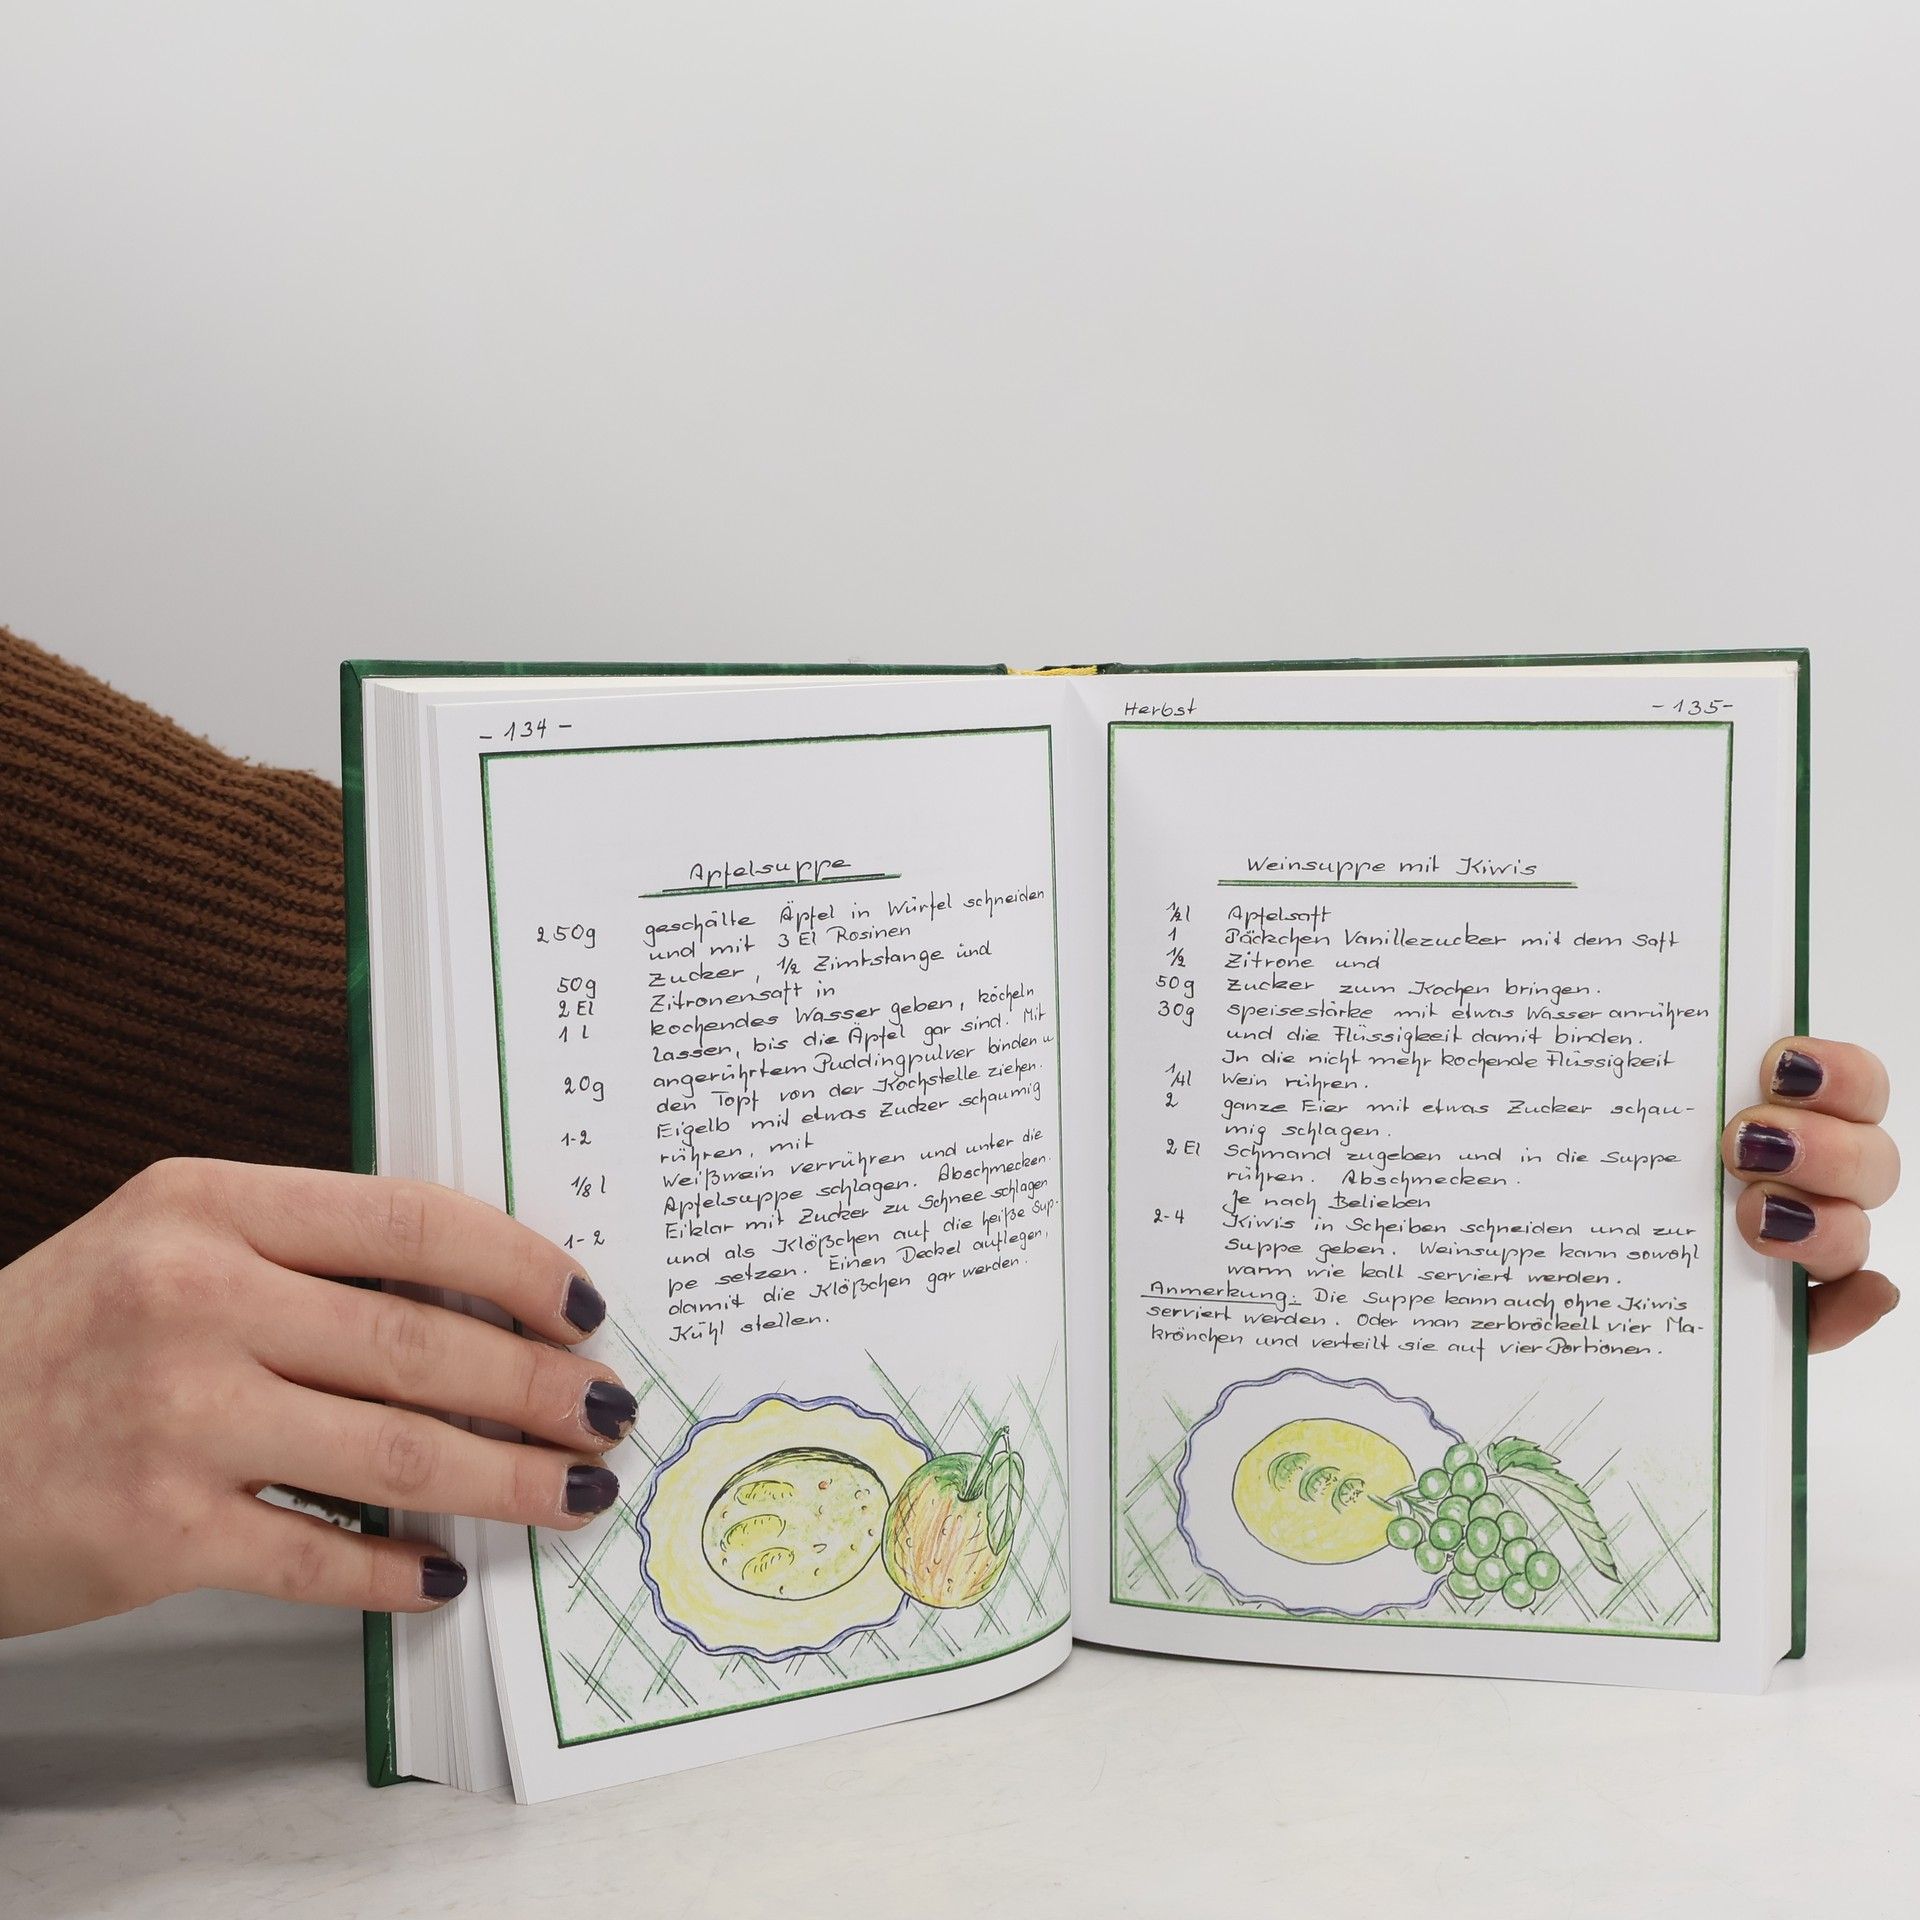 - 134 -
Apfelsuppe
250g geschälte Äpfel in Würfel schneiden
und mit 3 El Rosinen
50g Zucker, 1/2 Zimtstange und
2 El Zitronensaft in
1 l kochendes Wasser geben, köcheln
lassen, bis die Äpfel gar sind. Mit
20g angerührtem Puddingpulver binden u
den Topf von der Kochstelle ziehen.
1-2 Eigelb mit etwas Zucker schaumig
rühren, mit
1/8 l Weißwein verrühren und unter die
Apfelsuppe schlagen. Abschmecken.
1-2 Eiklar mit Zucker zu Schnee schlagen
und als Klößchen auf die heiße Sup-
pe setzen. Einen Deckel auflegen,
damit die Klößchen gar werden.
Kühl stellen.
Herbst - 135 -
Weinsuppe mit Kiwis
1/2 l Apfelsaft
1 Päckchen Vanillezucker mit dem Saft
1/2 Zitrone und
50g Zucker zum Kochen bringen.
30g Speisestärke mit etwas Wasser anrühren
und die Flüssigkeit damit binden.
In die nicht mehr kochende Flüssigkeit
1/4 l Wein rühren.
2 ganze Eier mit etwas Zucker schau-
mig schlagen.
2 El Schmand zugeben und in die Suppe
rühren. Abschmecken.
Je nach Belieben
2-4 Kiwis in Scheiben schneiden und zur
Suppe geben. Weinsuppe kann sowohl
warm wie kalt serviert werden.
Anmerkung: Die Suppe kann auch ohne Kiwis
serviert werden. Oder man zerbröckelt vier Ma-
krönchen und verteilt sie auf vier Portionen.